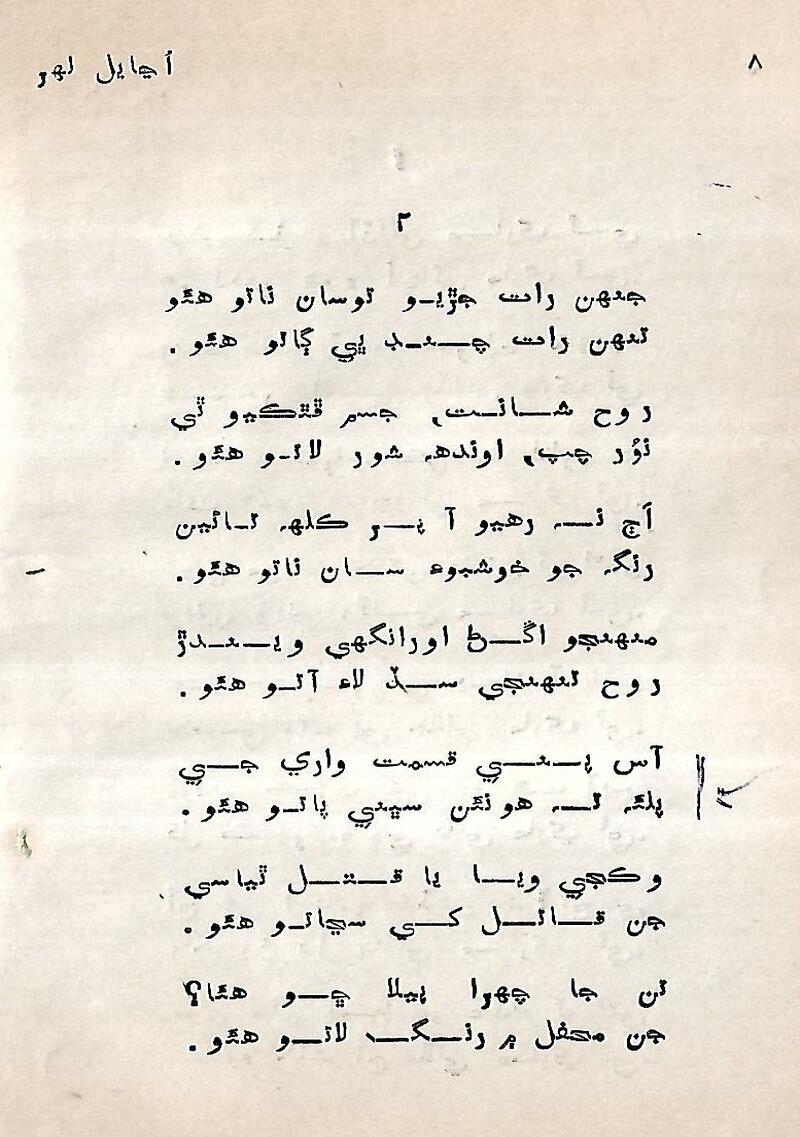 ۸
اُڃايل لهر
۲
جنهن رات جڙيو توسان ناتو هئو
تنهن رات چنڊ ڀي ڳاتو هئو.
روح شانت، جسم ڦٿڪيو ٿي
نُور چپ، اونده شور لاتو هئو.
اَڄ نه رهيو آ پر ڪلهه تائين
رنگ جو خوشبوءِ سان ناتو هئو.
منهنجو اڱڻ اورانگهي ويندڙ
روح تنهنجي سڏ لاءِ آتو هئو.
آس پني قسمت واري جي
پلئه ته هونئن سڀني پاتو هئو.
وڪجي ويا يا قتل ٿياسي
جن قاتل کي سڃاتو هئو.
تن جا چهرا پيلا ڇو هئا؟
جن محفل ۾ رنگ لاتو هئو.